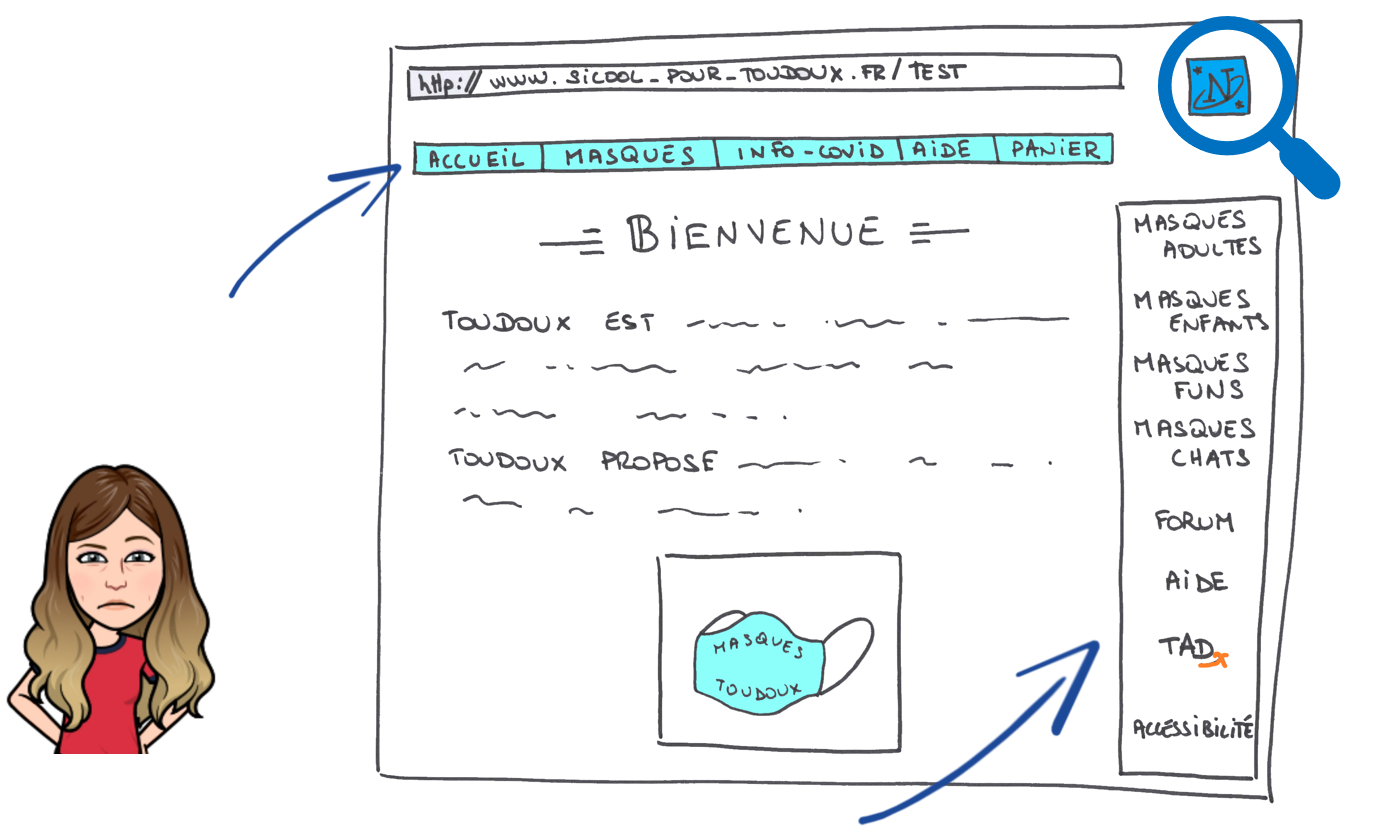 http:// www.sicool_pour_toudoux.fr/test
N
ACCUEIL MASQUES INFO-COVID AIDE PANIER
BIENVENUE
TOUDOUX EST
TOUDOUX PROPOSE
MASQUES
TOUDOUX
MASQUES
ADULTES
MASQUES
ENFANTS
MASQUES
FUNS
MASQUES
CHATS
FORUM
AIDE
TADx
ACCESSIBILITÉ